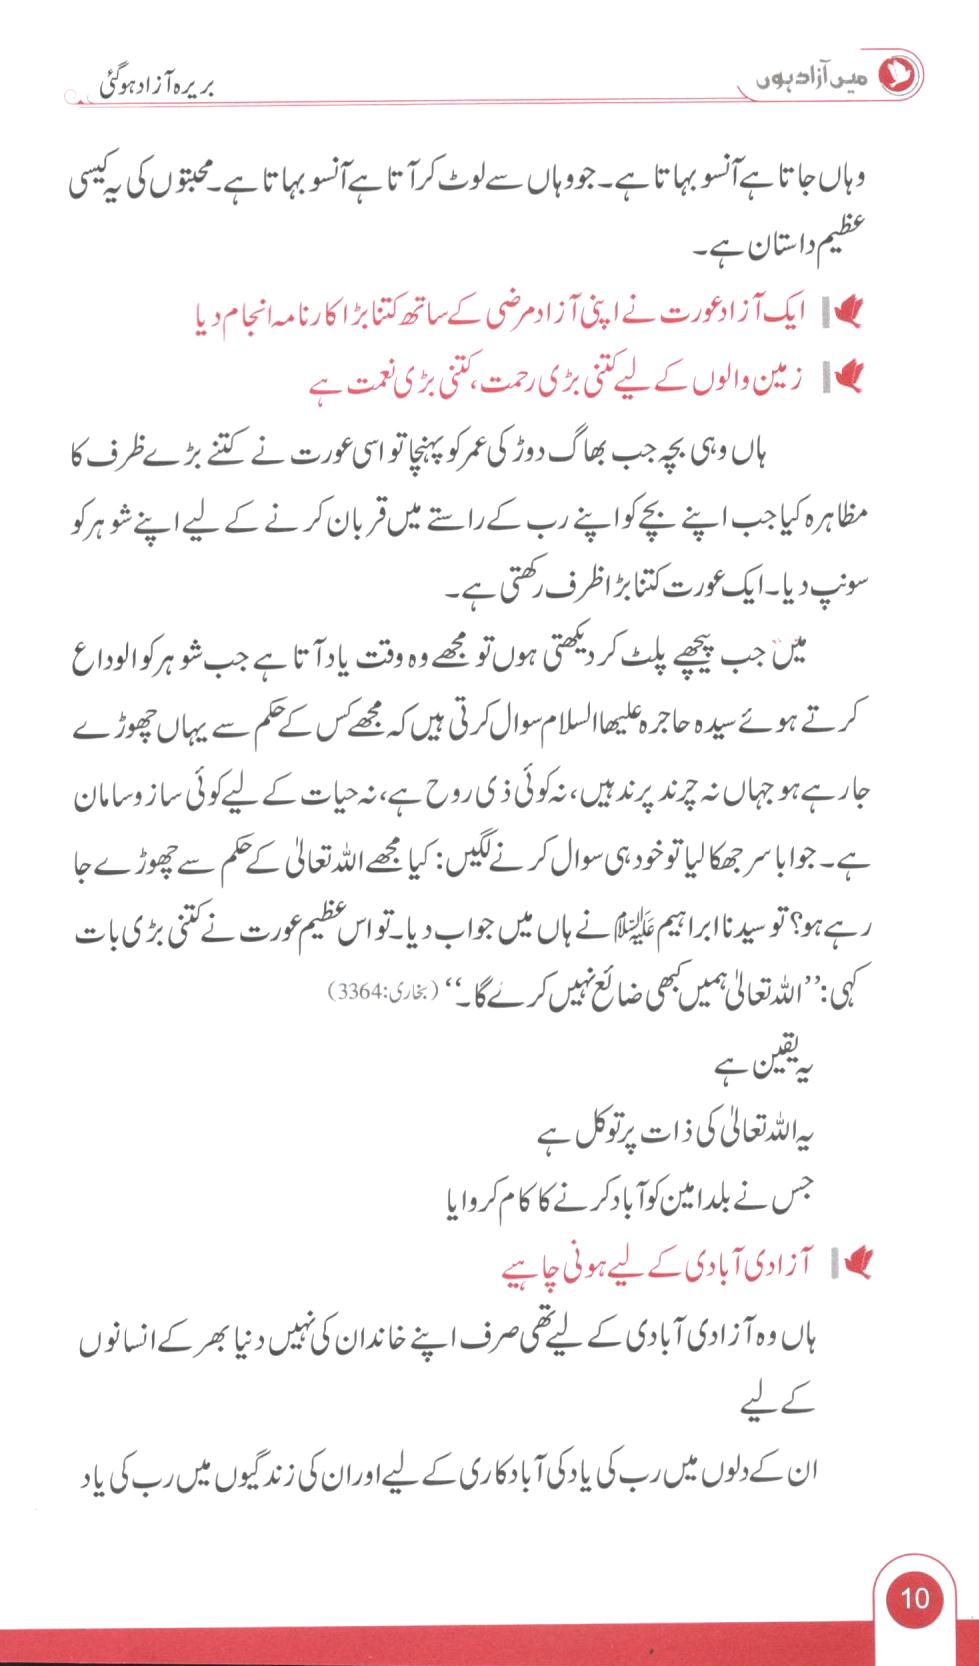 میں آزاد ہوں
بریرہ آزاد ہوگئی
وہاں جاتا ہے آنسو بہاتا ہے۔ جو وہاں سے لوٹ کر آتا ہے آنسو بہاتا ہے۔ محبتوں کی یہ کیسی
عظیم داستان ہے۔
ایک آزاد عورت نے اپنی آزاد مرضی کے ساتھ کتنا بڑا کارنامہ انجام دیا
زمین والوں کے لیے کتنی بڑی رحمت، کتنی بڑی نعمت ہے
ہاں وہی بچہ جب بھاگ دوڑ کی عمر کو پہنچا تو اسی عورت نے کتنے بڑے ظرف کا
مظاہرہ کیا جب اپنے بچے کو اپنے رب کے راستے میں قربان کرنے کے لیے اپنے شوہر کو
سونپ دیا۔ ایک عورت کتنا بڑا ظرف رکھتی ہے۔
میں جب پیچھے پلٹ کر دیکھتی ہوں تو مجھے وہ وقت یاد آتا ہے جب شوہر کو الوداع
کرتے ہوئے سیدہ حاجرہ علیھا السلام سوال کرتی ہیں کہ مجھے کس کے حکم سے یہاں چھوڑے
جا رہے ہو جہاں نہ چرند پرند ہیں، نہ کوئی ذی روح ہے، نہ حیات کے لیے کوئی ساز و سامان
ہے۔ جوابا سر جھکا لیا تو خود ہی سوال کرنے لگیں: کیا مجھے اللہ تعالیٰ کے حکم سے چھوڑے جا
رہے ہو؟ تو سیدنا ابراہیم علیہ السلام نے ہاں میں جواب دیا۔ تو اس عظیم عورت نے کتنی بڑی بات
کہی: ’’اللہ تعالیٰ ہمیں کبھی ضائع نہیں کرے گا۔‘‘ (بخاری: 3364)
یہ یقین ہے
یہ اللہ تعالیٰ کی ذات پر توکل ہے
جس نے بلد امین کو آباد کرنے کا کام کروایا
آزادی آبادی کے لیے ہونی چاہیے
ہاں وہ آزادی آبادی کے لیے تھی صرف اپنے خاندان کی نہیں دنیا بھر کے انسانوں
کے لیے
ان کے دلوں میں رب کی یاد کی آباد کاری کے لیے اور ان کی زندگیوں میں رب کی یاد
10